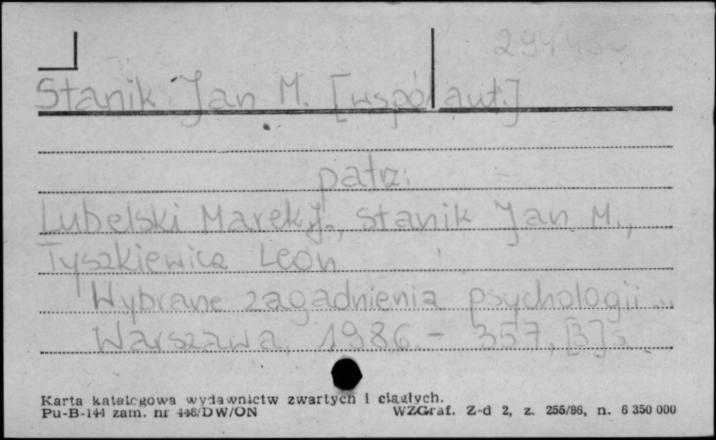 Stanik Jan M. [współaut.]
patrz:
Lubelski Marek J., Stanik Jan M.,
Tyszkiewicz Leon
Wybrane zagadnienia psychologii ...
Warszawa 1986. - 357, [3] s.
Karta katalogowa wydawnictw zwartych i ciągłych.
Pu-B-144 zam. nr 448/DW/ON WZGraf. Z-d 2, z. 255/86, n. 6 350 000